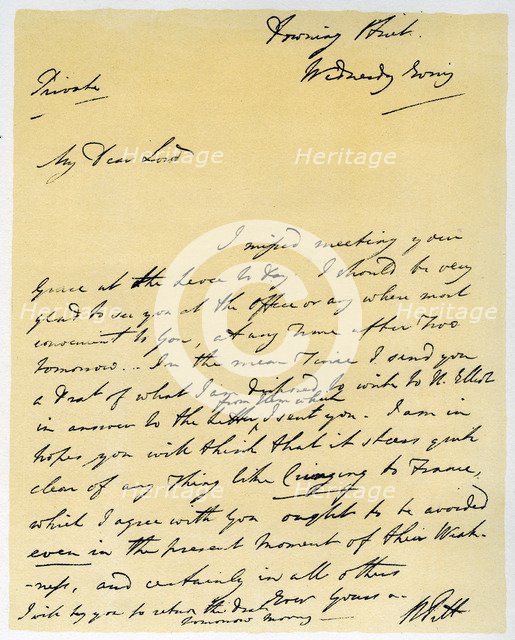 Downing Street.
Wednesday Evening
Private
My Dear Lord
I missed meeting your
Grace at the Levee to day I should be very
glad to see you at the Office or any where most
convenient to You, at any Time after Two
tomorrow.. In the mean Time I send you
a Draft of what I am disposed to write to H. Elliot
from him which
in answer to the Letter I sent you. I am in
hopes you will think that it steers quite
clear of any Thing like Cringing to France,
which I agree with You ought to be avoided
even in the present Moment of their Weak-
-ness, and certainly in all others
Ever Yours
I will beg you to return the Draft
tomorrow morng
W Pitt
Heritage
Heritage
Heritage
Heritage
Heritage
Heritage
Heritage
C